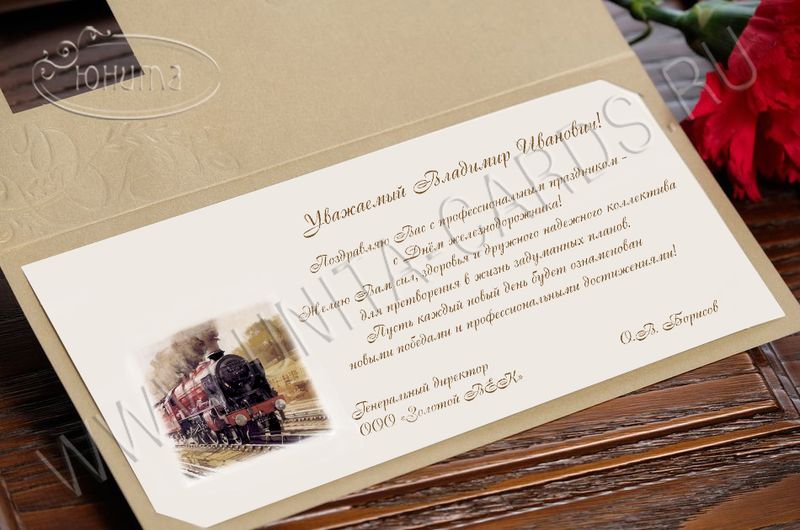 Юнита
Уважаемый Владимир Иванович!
Поздравляю Вас с профессиональным праздником –
с Днём железнодорожника!
Желаю Вам сил, здоровья и дружного надежного коллектива
для претворения в жизнь задуманных планов.
Пусть каждый новый день будет ознаменован
новыми победами и профессиональными достижениями!
Генеральный директор
ООО «Золотой ВЕК»
О.В. Борисов
WWW.UNITA-CARDS.RU